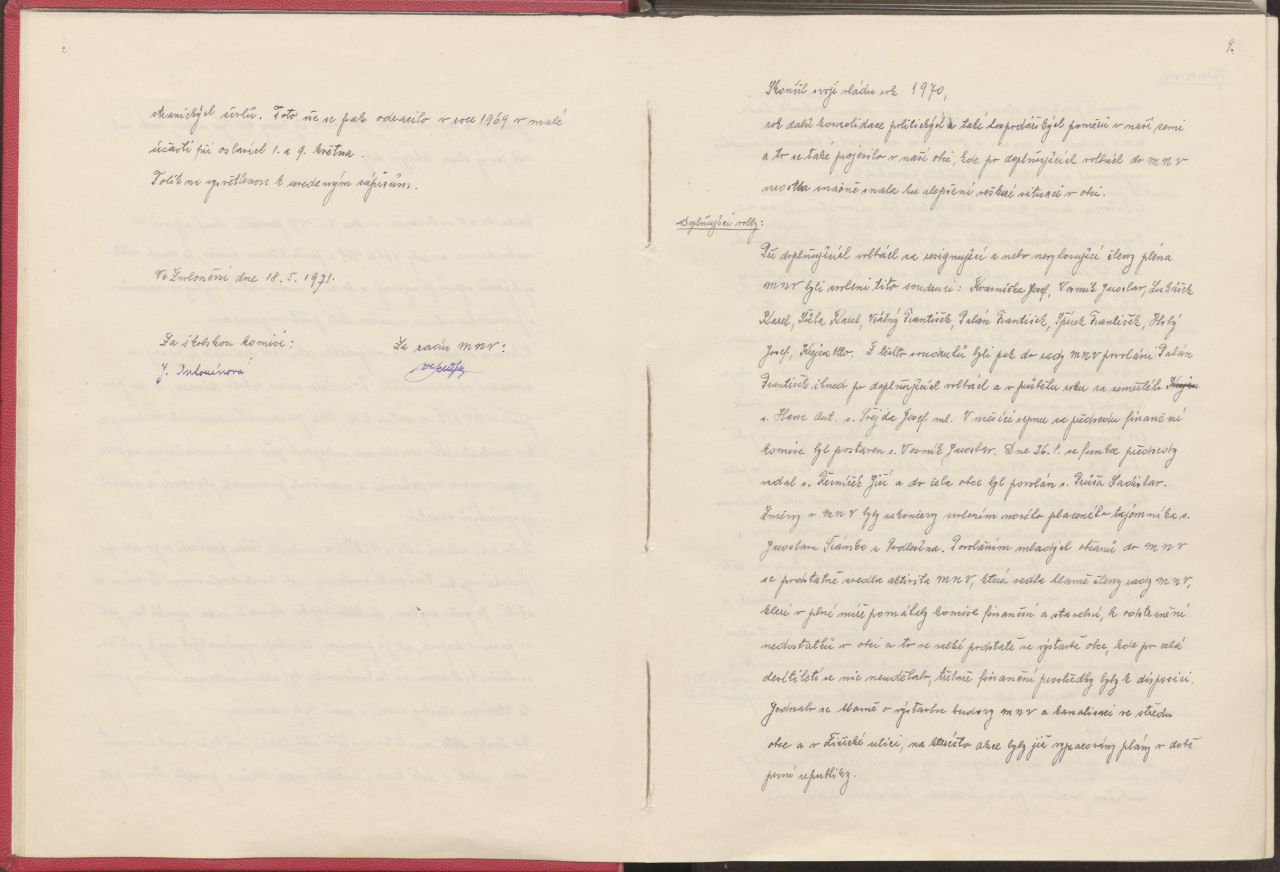 stranických úvelů. Toto vše se pak odrazilo v roce 1969 v malé
účasti při oslavách 1. a 9. května.
Tolik na vysvětlenou k uvedeným zápisům.
Ve dne 18. 5. 1971.
Za školskou komisi: Za radu MNV:
J. Antonínová
9.
Skončil svoji vládu rok 1970,
rok další konsolidace politických a také hospodářských poměrů v naší zemi
a to se také projevilo v naší obci, kde po doplňujících volbách do MNV
nastala značně snaha ku zlepšení veškeré situaci v obci.
Doplňující volby:
Při doplňujících volbách za resignující a nebo nevyhovující členy pléna
MNV byli zvoleni tito soudruzi: Kvasnička Josef, Vosmík Jaroslav, Lukášek
Karel, Síla Karel, Vrátný František, Palán František, Jírek František,
Josef, Kejča Otto. Z těchto soudruhů byli pak do rady MNV povoláni Palán
František ihned po doplňujících volbách a v průběhu roku za zemřelého
s. Hanze Ant. s. Švejda Josef ml. V měsíci srpnu za předsedu finanční
komise byl postaven s. Vosmík Jaroslav. Dne 26. 8. se funkce předsedy
vzdal s. Řezníček Jiří a do čela obce byl povolán s. Průša Ladislav.
Změny v MNV byly ukončeny zvolením nového placeného tajemníka s.
Jaroslava z Podlesína. Povoláním mladých občanů do MNV
se podstatně zvedla aktivita MNV, která vedla hlavně členy rady MNV,
kteří v plné míře pomáhaly komise finanční a stavební, k odstranění
nedostatků v obci a to ve velké podstatě ve výstavbě obce, kde po celá
desítiletí se nic neudělalo, třebně finanční prostředky byly k disposici.
Jednalo se hlavně o výstavbu budovy MNV a kanalisaci ve středu
obce a v Žižické ulici, na kteréžto akce byly již vypracovány plány v době
první republiky.